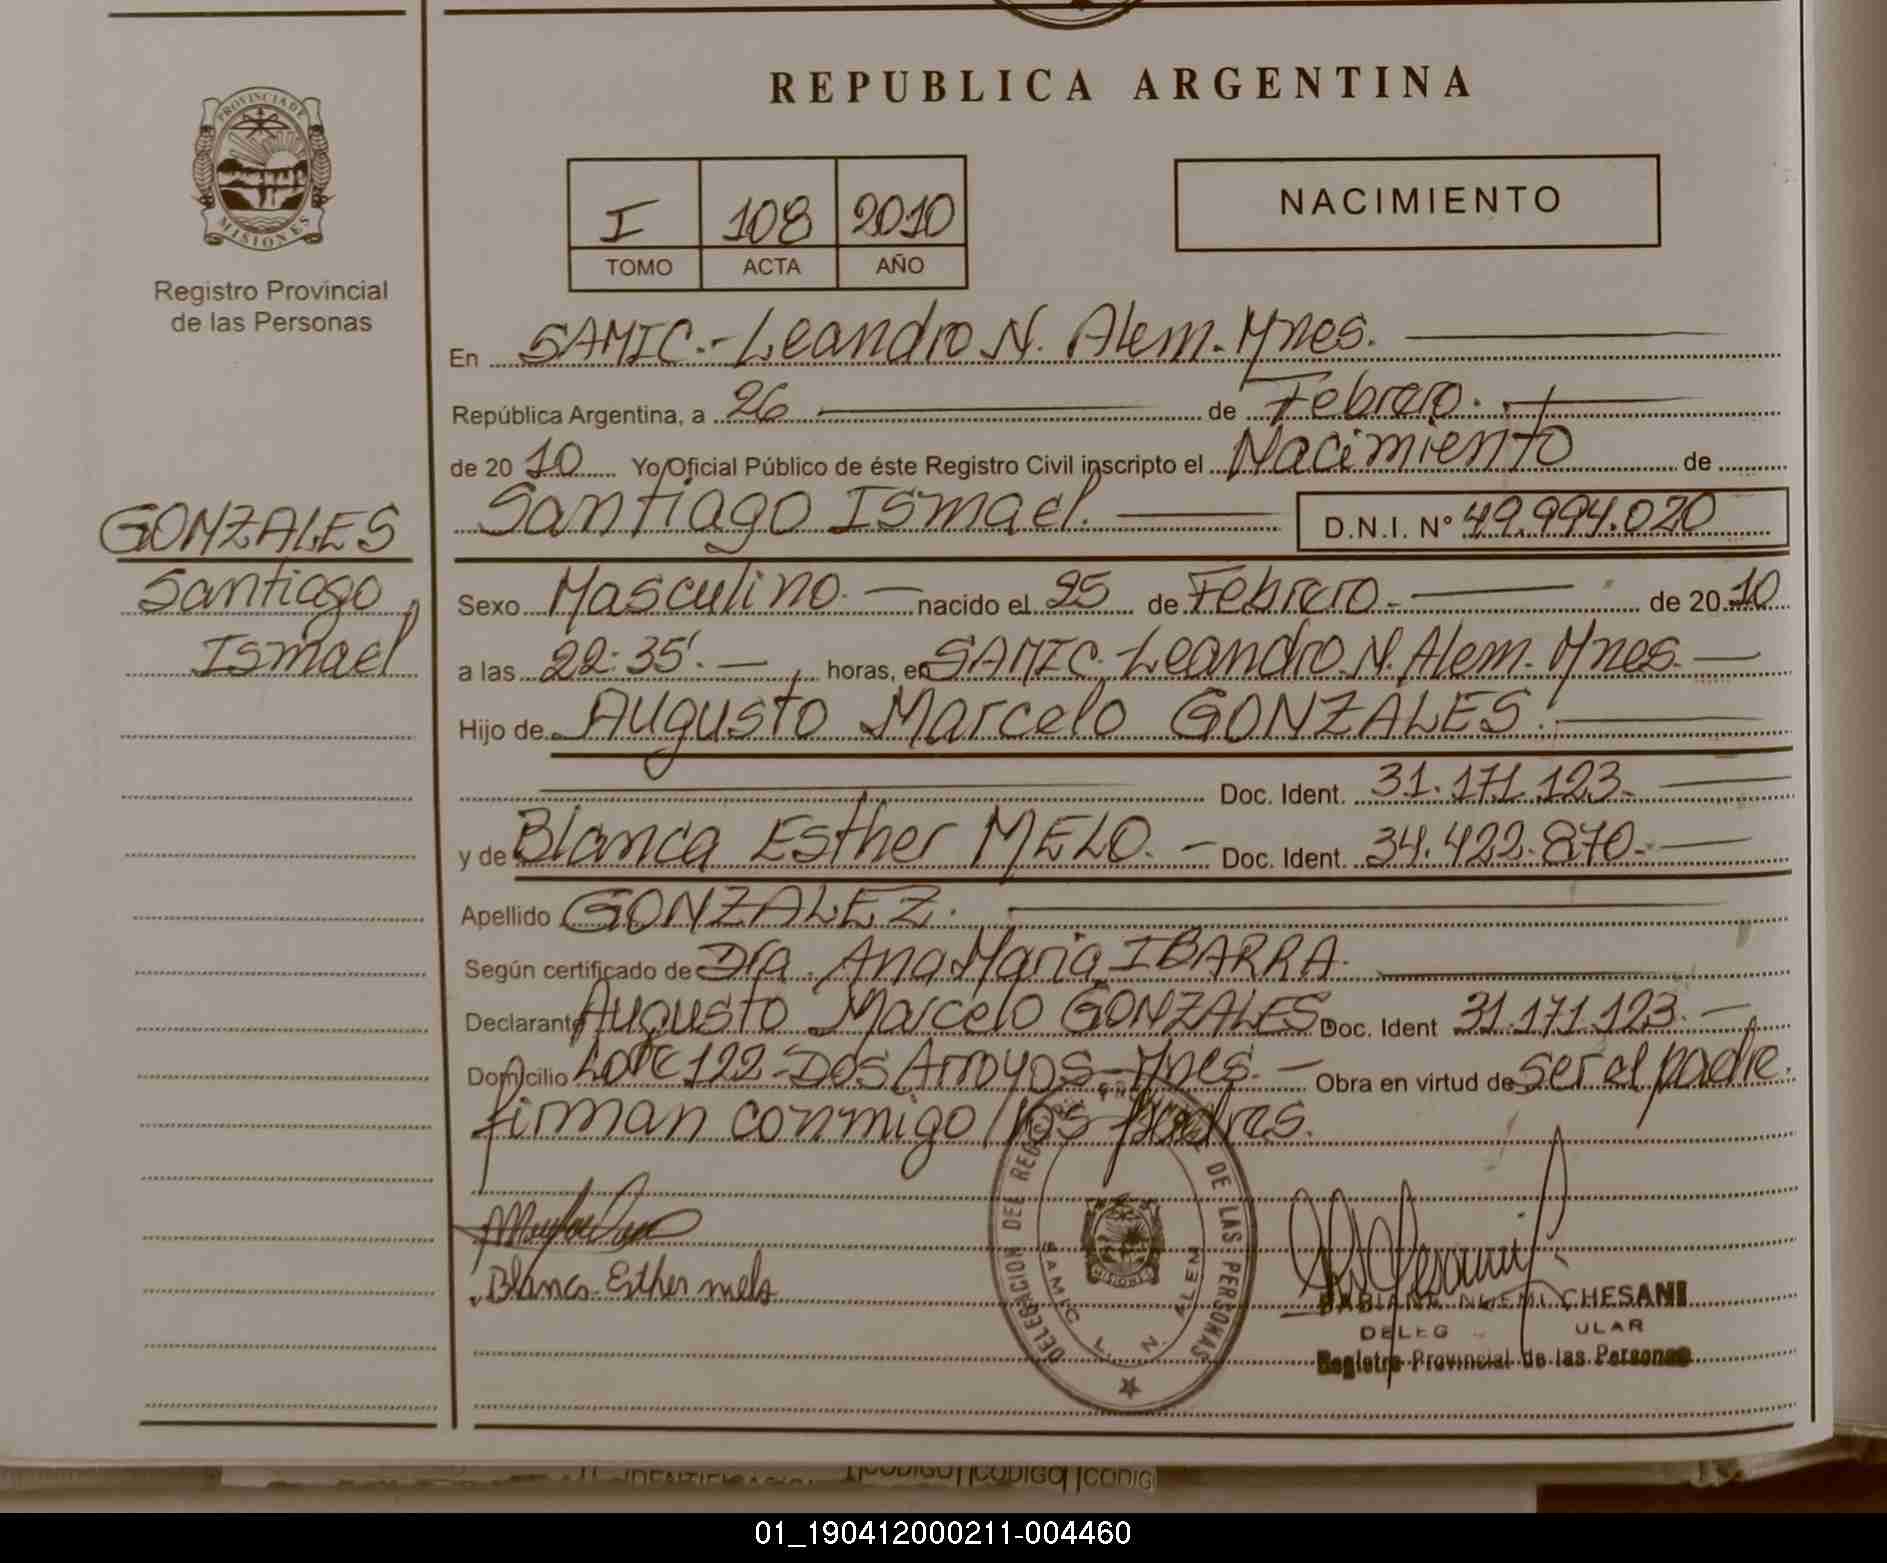 PROVINCIA DE
MISIONES
Registro Provincial
de las Personas
GONZALES
Santiago
Ismael
REPUBLICA ARGENTINA
I 108 2010
TOMO ACTA AÑO
NACIMIENTO
En SAMIC.-Leandro N. Alem. Mnes.
República Argentina, a 26 de Febrero.
de 2010 Yo Oficial Público de éste Registro Civil inscripto el Nacimiento de
Santiago Ismael. D.N.I. N° 49.994.020
Sexo Masculino.- nacido el 25 de Febrero.- de 20 10
a las 22:35'.- horas, en SAMIC. Leandro. N. Alem. Mnes.-
Hijo de Augusto Marcelo GONZALES.
Doc. Ident. 31.171.123.-
y de Blanca Esther MELO.- Doc. Ident. 34.422.870.-
Apellido GONZALEZ.
Según certificado de Dra. Ana Maria IBARRA.
Declarante Augusto Marcelo GONZALES Doc. Ident 31.171.123.-
Domicilio Lote 122-Dos Arroyos-Mnes.- Obra en virtud de ser el padre.
firman conmigo los padres.
Blanca Esther melo
DELEGACION DEL REGISTRO PROVINCIAL DE LAS PERSONAS
SAMIC L. N. ALEM
MISIONES
NOEMI CHESANI
Registro Provincial de las Personas
01_190412000211-004460